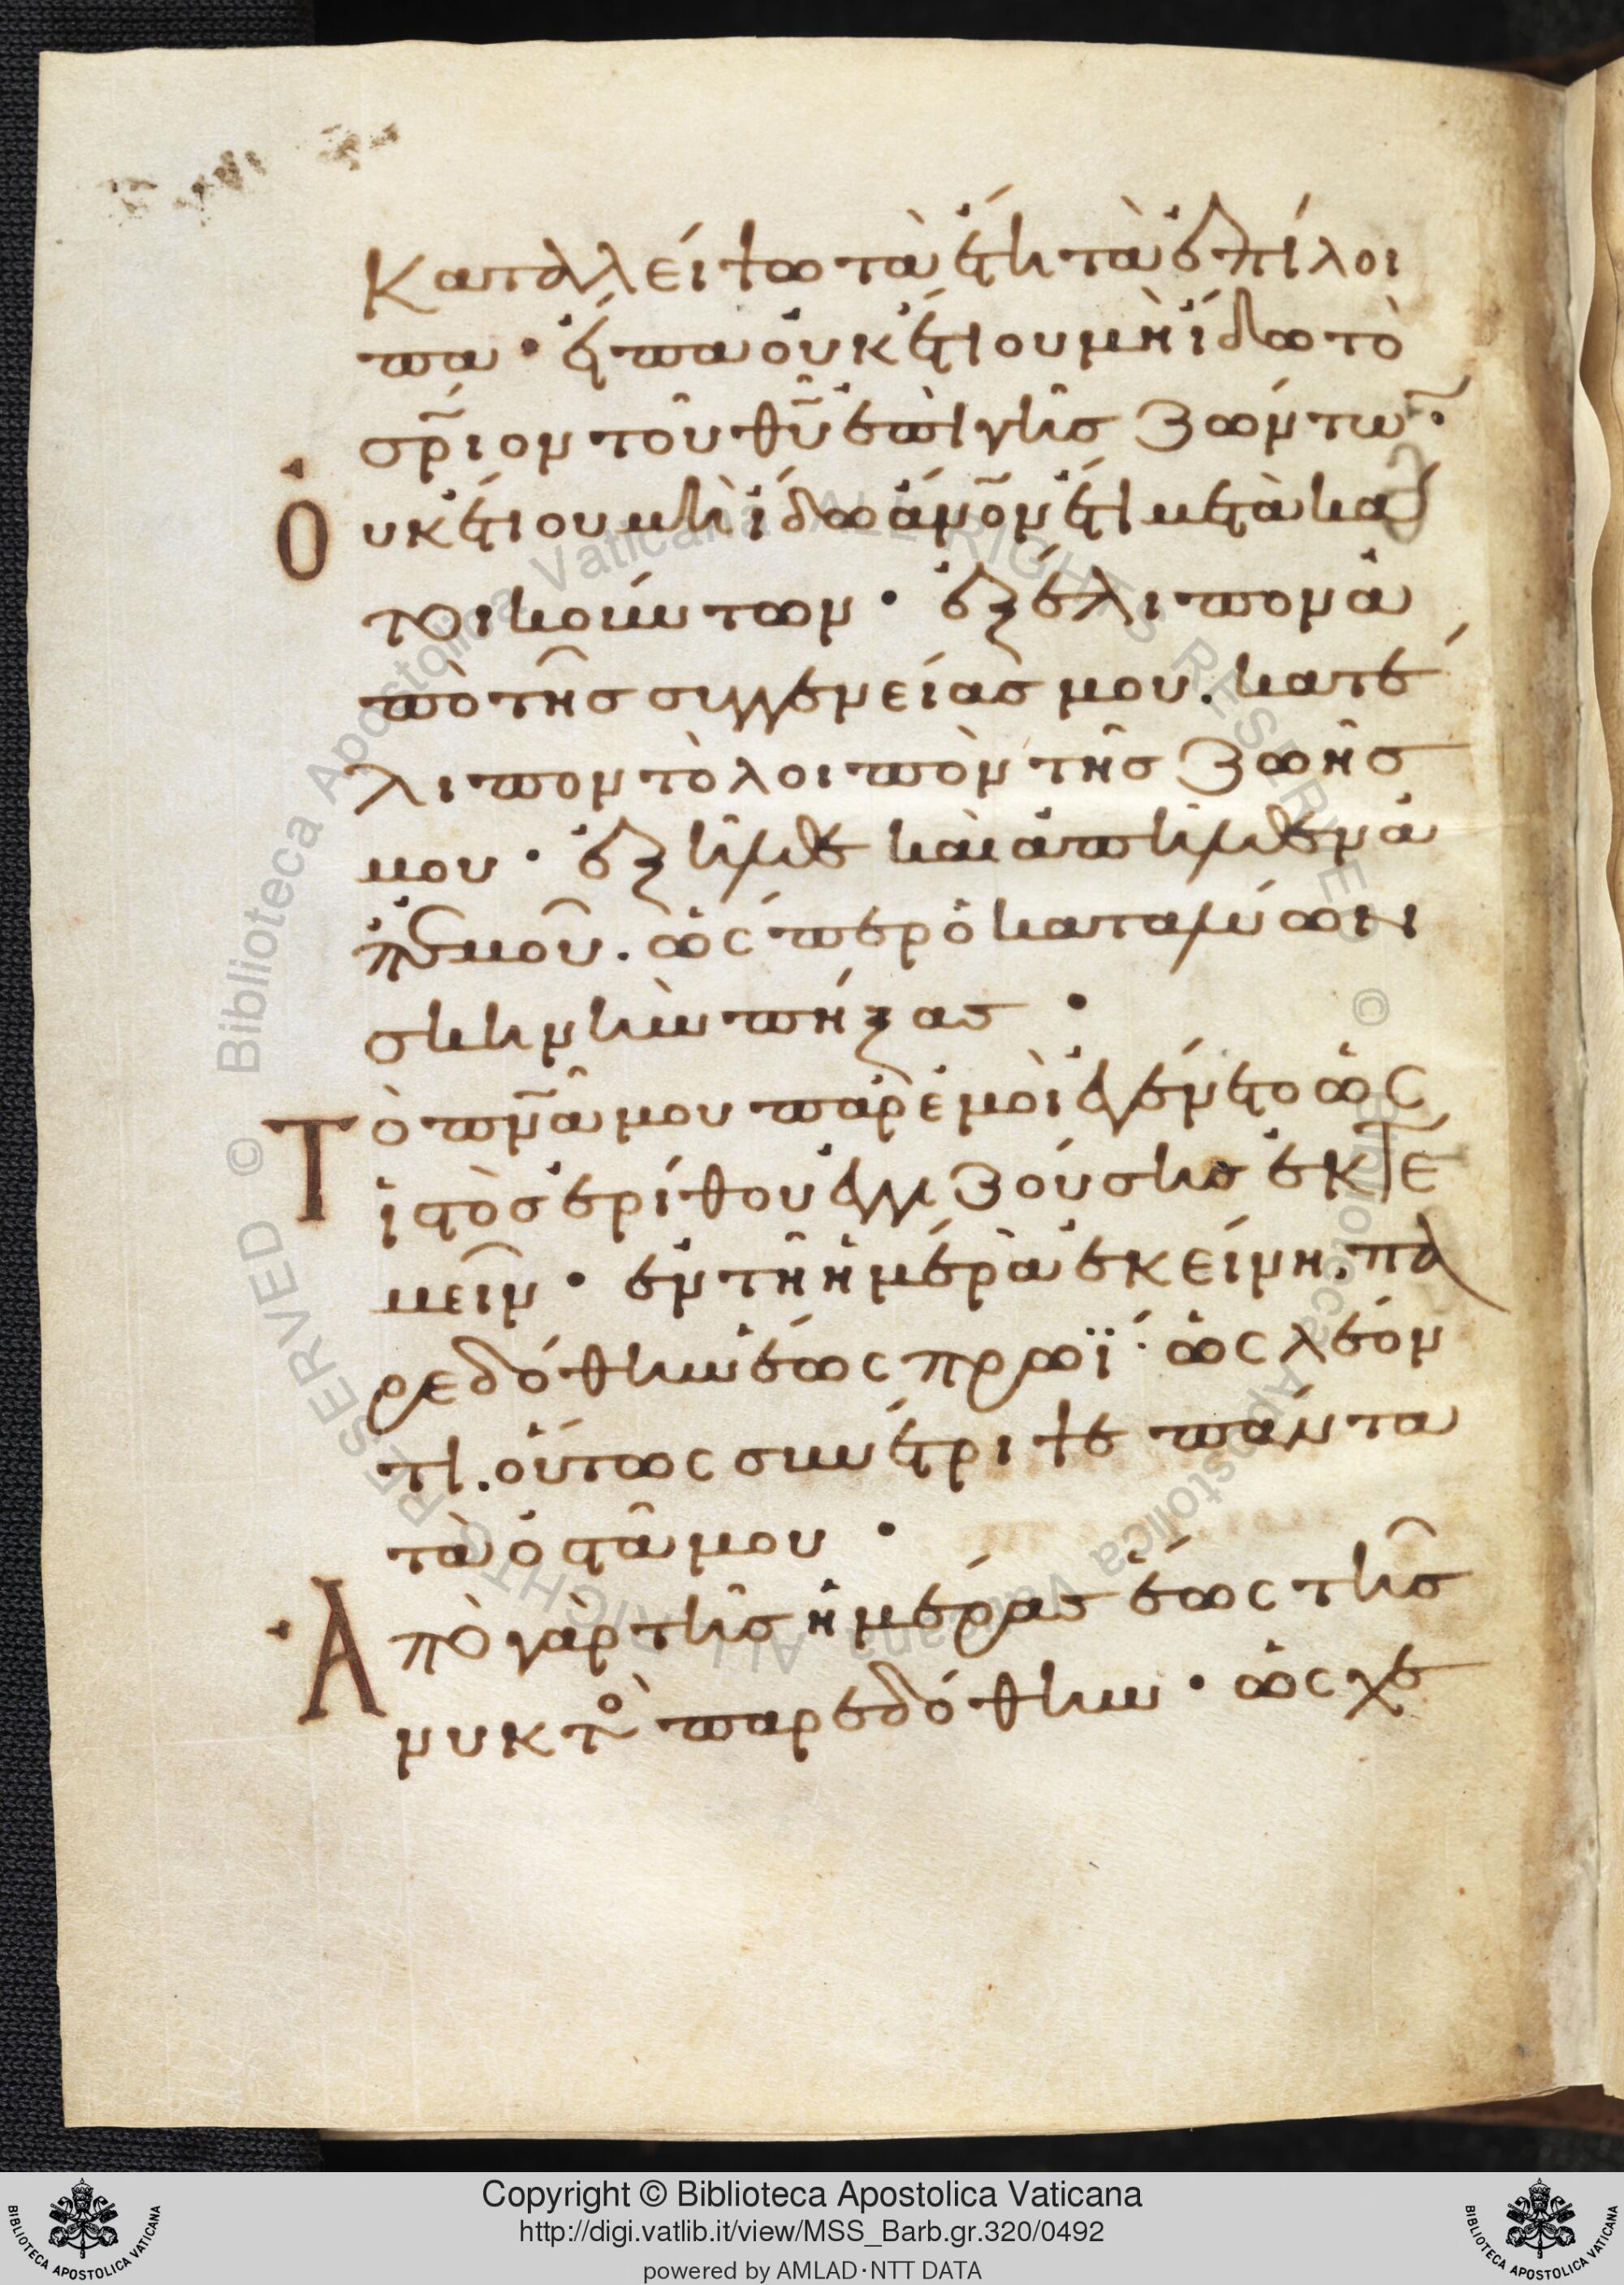 Καταλλείψω τὰ ἔτη τὰ ἐπίλοι
πα· εἶπα οὐκέτι οὐ μὴ ἴδω τὸ
σρ̅ιον τοῦ θυ̅ ἐπὶ γῆς ζώντων·
Οὐκέτι οὐ μὴ ἴδω ἀνο̅ν ἔτι μετὰ κα
τοικούντων· ἐξέλιπον ἀ
πὸ τῆς συγγενείας μου. κατέ
λιπον τὸ λοιπὸν τῆς ζωῆς
μου· ἐξῆλθε καὶ ἀπῆλθεν ἀ
π' ἐμοῦ. ὥσπερ ὁ καταλύων
σκηνὴν πήξας·
Τὸ πνα̅ μου παρ' ἐμοὶ ἐγένετο ὡς
ἱστὸς ἐρίθου ἐγγιζούσης ἐκτε
μεῖν· ἐν τῇ ἡμέρᾳ ἐκείνῃ. πα
ρεδόθην ἕως πρωΐ· ὡς λέον
τι. οὕτως συνέτριψε πάντα
τὰ ὀστᾶ μου·
Ἀπὸ γὰρ τῆς ἡμέρας ἕως τῆς
νυκτὸ παρεδόθην· ὡς χε
Copyright © Biblioteca Apostolica Vaticana
http://digi.vatlib.it/view/MSS_Barb.gr.320/0492
powered by AMLAD·NTT DATA
BIBLIOTECA APOSTOLICA VATICANA
BIBLIOTECA APOSTOLICA VATICANA